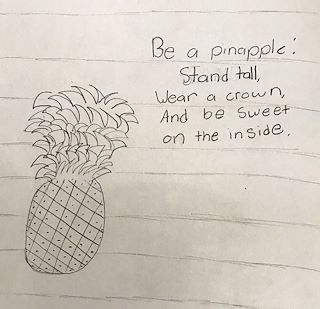 Be a pinapple:
Stand tall,
Wear a crown,
And be sweet
on the inside.